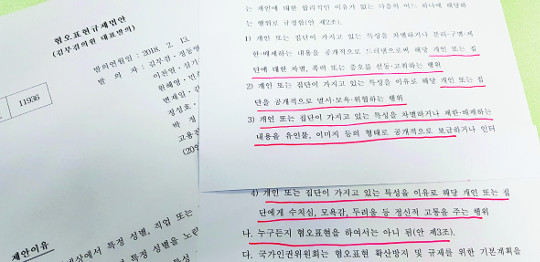 혐오표현규제법안
(김부겸의원 대표발의)
발의연월일 : 2018. 2. 13.
발 의 자 : 김부겸·정동영
이찬열·
원혜영·민
변재일·김
정성호·
박 정
고용진
(20인
11936
제안이유
대상에서 특정 성별, 직업 또는
특정 성별을 노린
는 개인에 대한 합리적인 이유가 없는 다음의 어느 하나에 해당하
는 행위로 규정함(안 제2조).
1) 개인 또는 집단이 가지고 있는 특성을 차별하거나 분리·구별·제
한·배제하는 내용을 공개적으로 드러냄으로써 해당 개인 또는 집
단에 대한 차별, 폭력 또는 증오를 선동·고취하는 행위
2) 개인 또는 집단이 가지고 있는 특성을 이유로 해당 개인 또는 집
단을 공개적으로 멸시·모욕·위협하는 행위
3) 개인 또는 집단이 가지고 있는 특성을 차별하거나 제한·배제하는
내용을 유인물, 이미지 등의 형태로 공개적으로 보급하거나 인터
4) 개인 또는 집단이 가지고 있는 특성을 이유로 해당 개인 또는 집
단에게 수치심, 모욕감, 두려움 등 정신적 고통을 주는 행위
나. 누구든지 혐오표현을 하여서는 아니 됨(안 제3조).
다. 국가인권위원회는 혐오표현 확산방지 및 규제를 위한 기본계획을